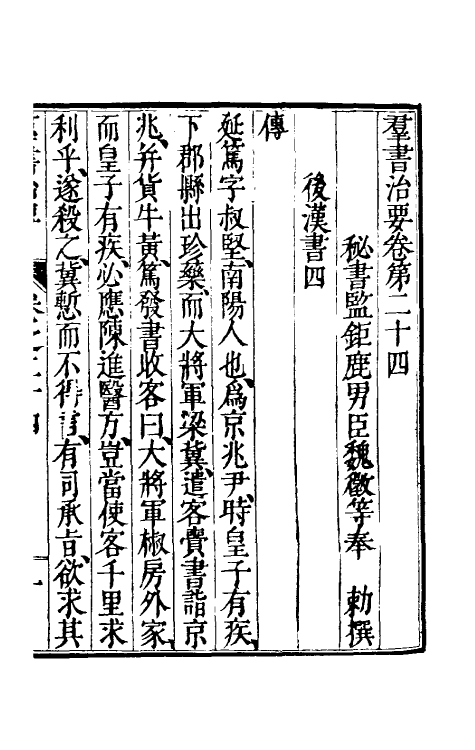 羣書治要卷第二十四
秘書監鉅鹿男臣魏徵等奉 勅撰
後漢書四
傳
延篤字叔堅、南陽人也、爲京兆尹、時皇子有疾、
下郡縣出珍藥、而大將軍梁冀、遣客賫書詣京
兆、并貨牛黃、篤發書收客曰、大將軍椒房外家、
而皇子有疾、必應陳進醫方、豈當使客千里求
利乎、遂殺之、冀慙而不得言、有司承旨、欲求其